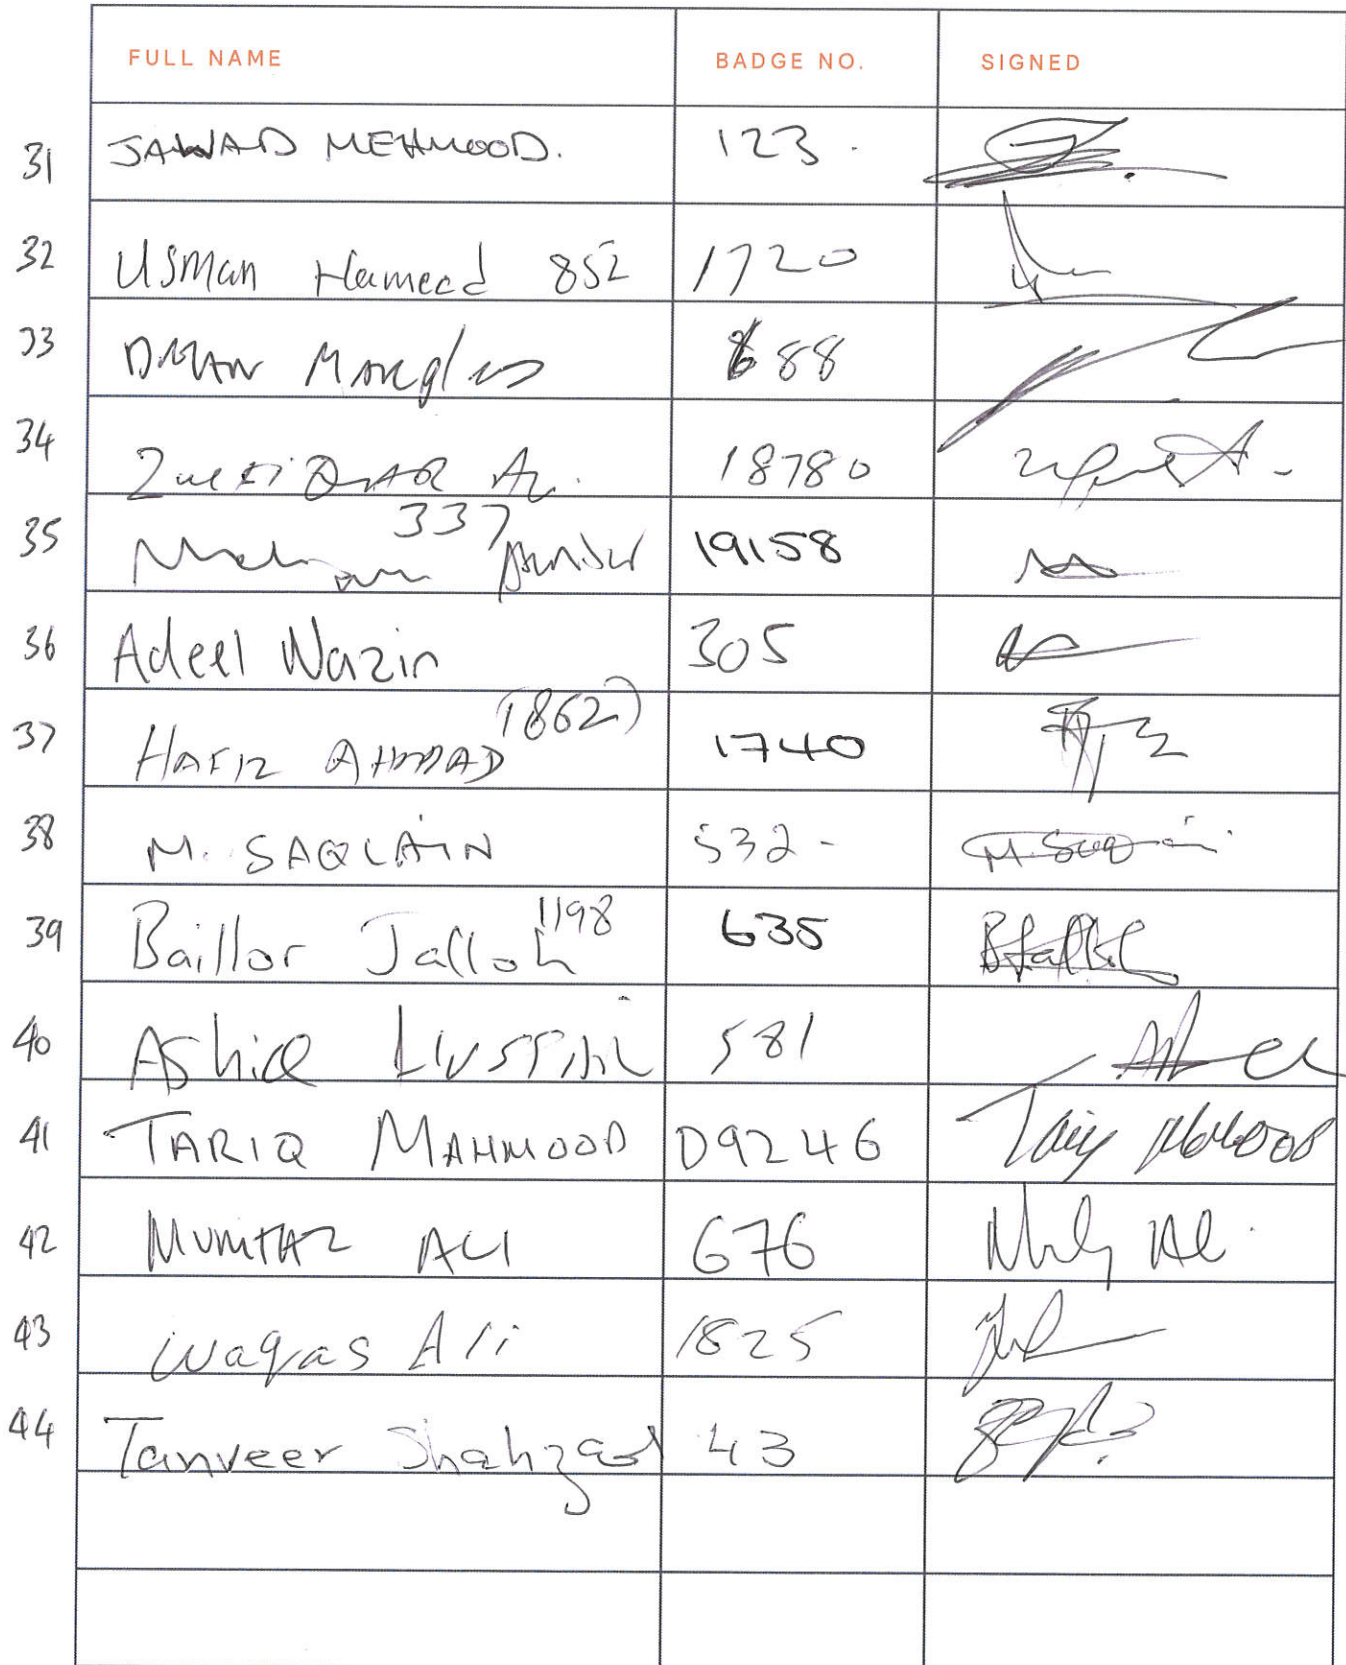 FULL NAME BADGE NO. SIGNED
31 JAWAD MEHMOOD. 123.
32 Usman Hameed 852 1720
33 688
34 ZulFiQAR Ali 18780
35 337 19158
36 Adeel Nazir 305
37 HAFIZ AHMAD (1862) 1740
38 M. SAQLAIN 532- M. Saqlain
39 Baillor Jalloh 1198 635 BJalloh
40 Ashiq Hussain 581
41 TARIQ MAHMOOD D9246 Tariq Mahmood
42 MUMTAZ ALI 676
43 Waqas Ali 1825
44 Tanveer Shahzad 43